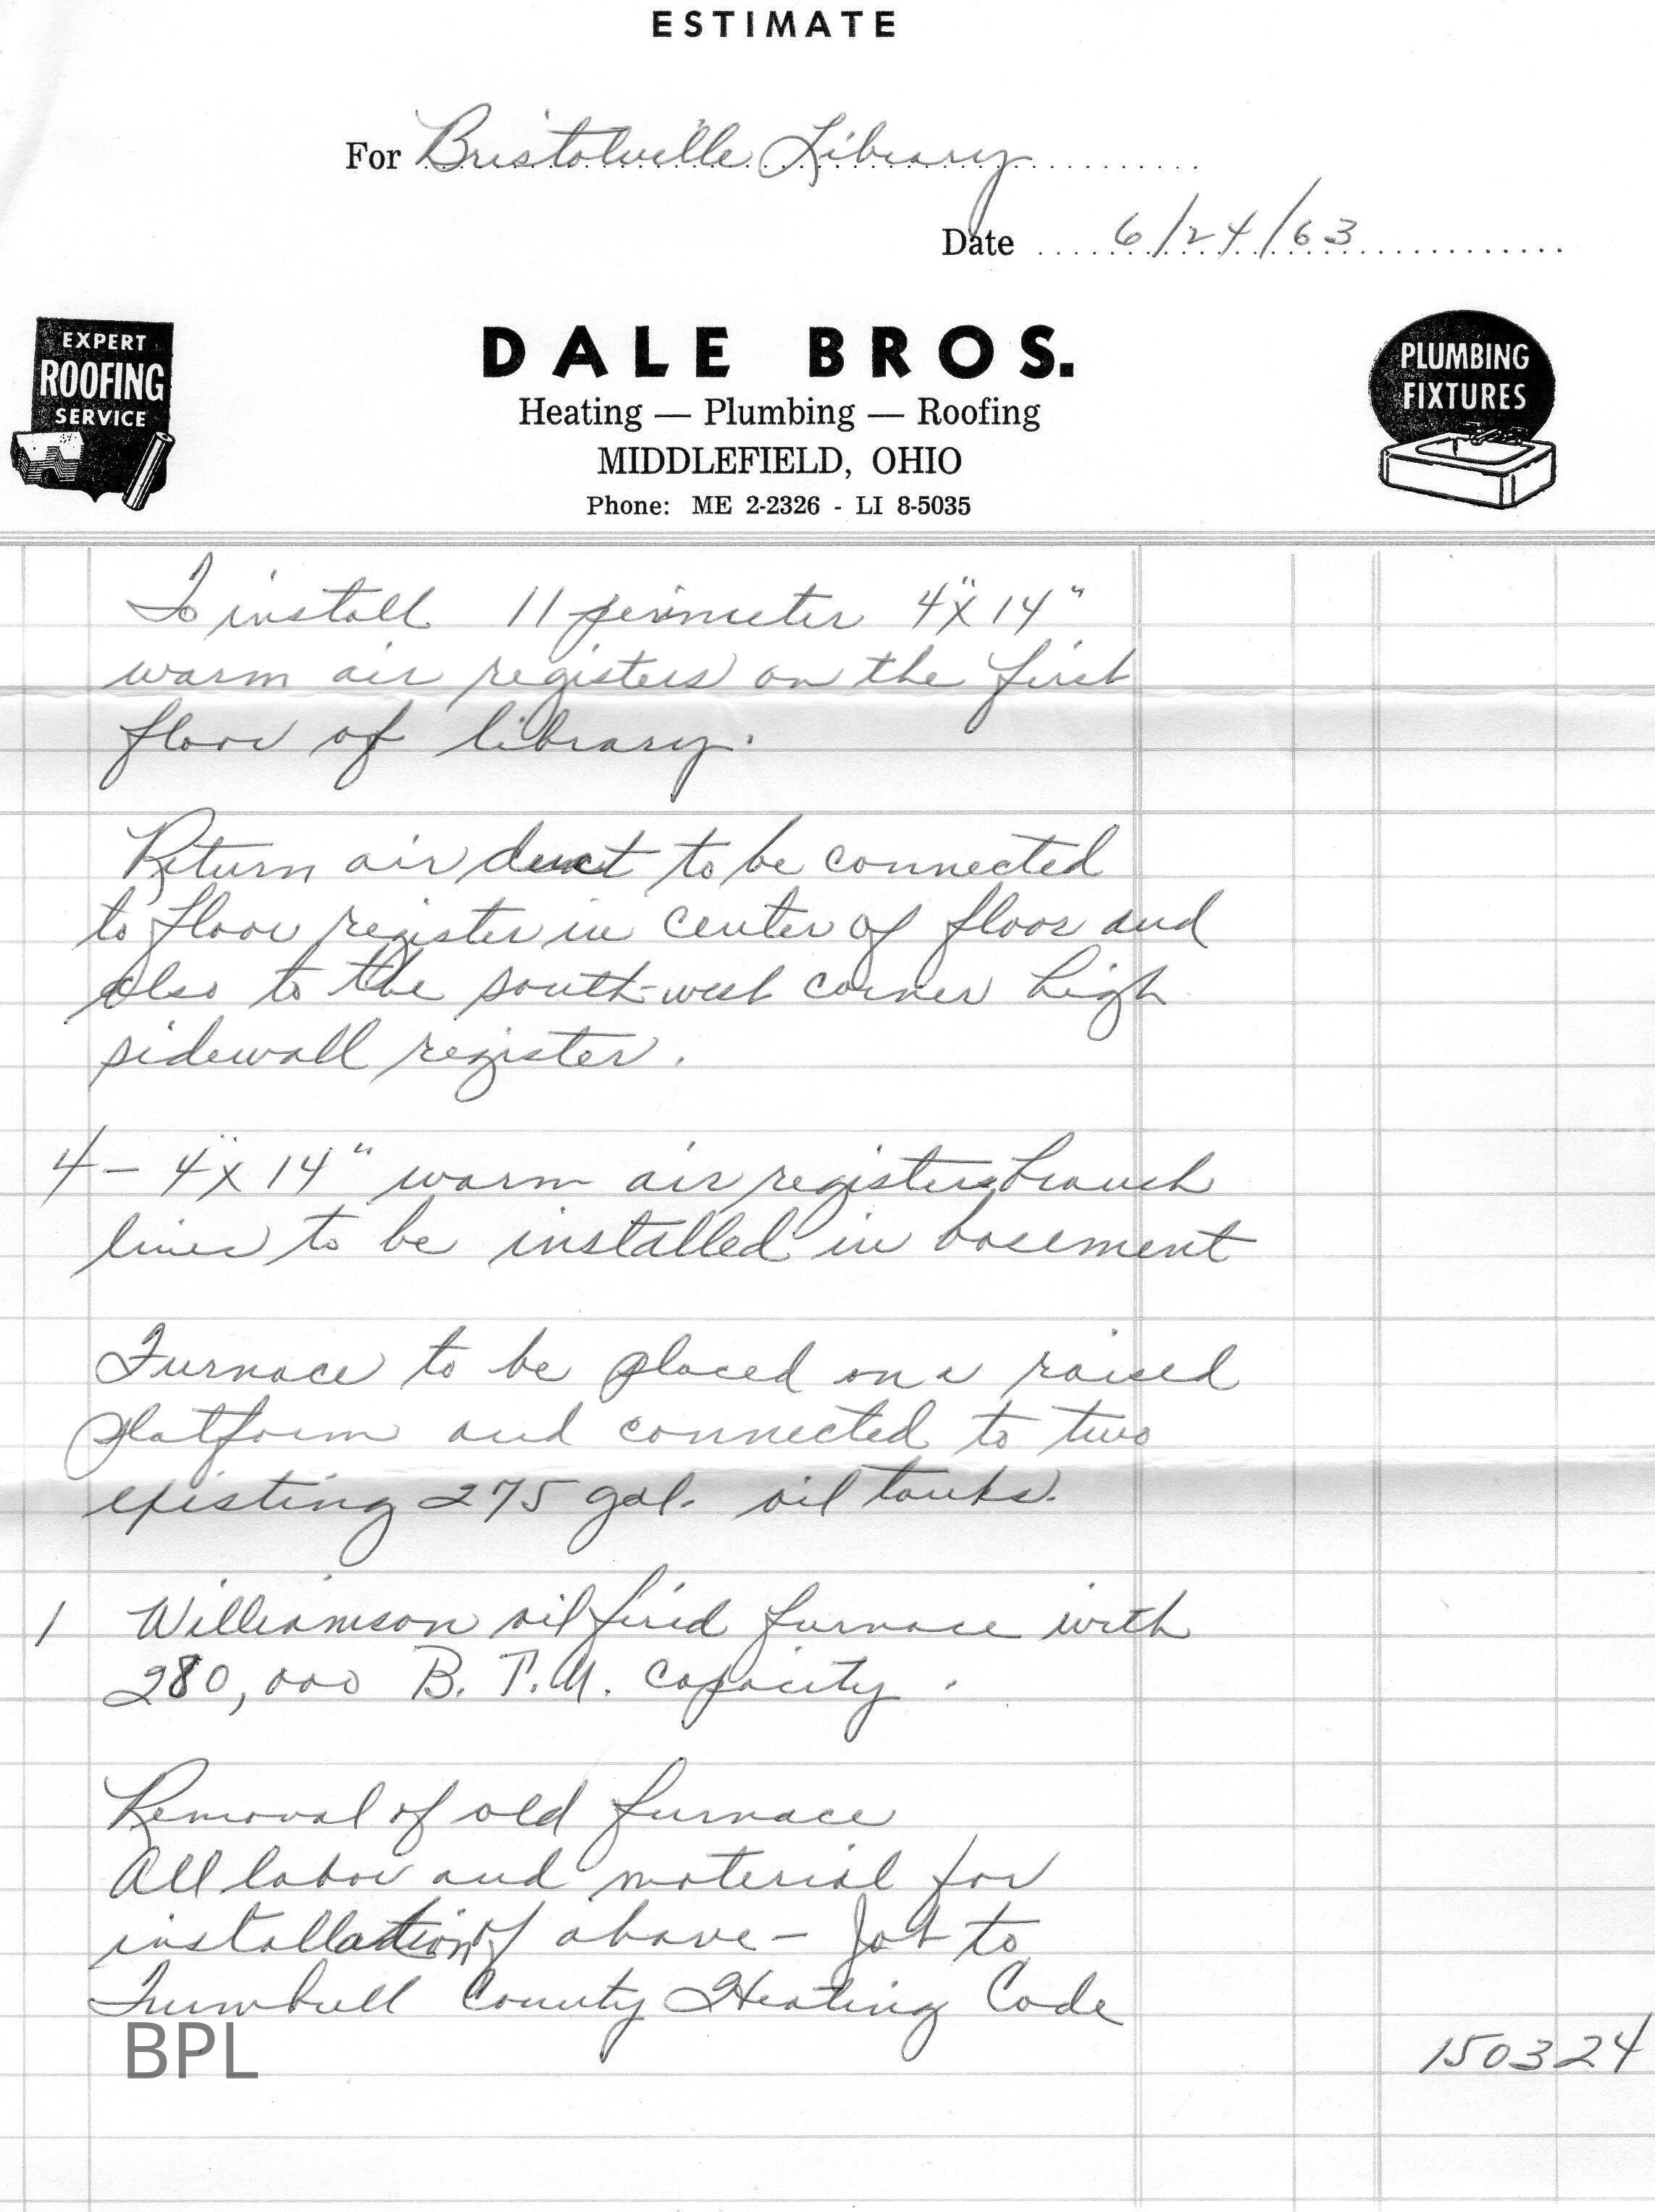 ESTIMATE
For Bristolville Library
Date 6/24/63
EXPERT
ROOFING
SERVICE
DALE BROS.
Heating — Plumbing — Roofing
MIDDLEFIELD, OHIO
Phone: ME 2-2326 - LI 8-5035
PLUMBING
FIXTURES
To install 11 perimeter 4"x14"
warm air registers on the first
floor of library.
Return air duct to be connected
to floor register in center of floor and
also to the south-west corner high
sidewall register.
4 - 4"x14" warm air registers branch
lines to be installed in basement
Furnace to be placed on a raised
platform and connected to two
existing 275 gal. oil tanks.
1 Williamson oil fired furnace with
280,000 B.T.U. capacity.
Removal of old furnace
All labor and material for
installation of above - Job to
Trumbull County Heating Code
150324
BPL